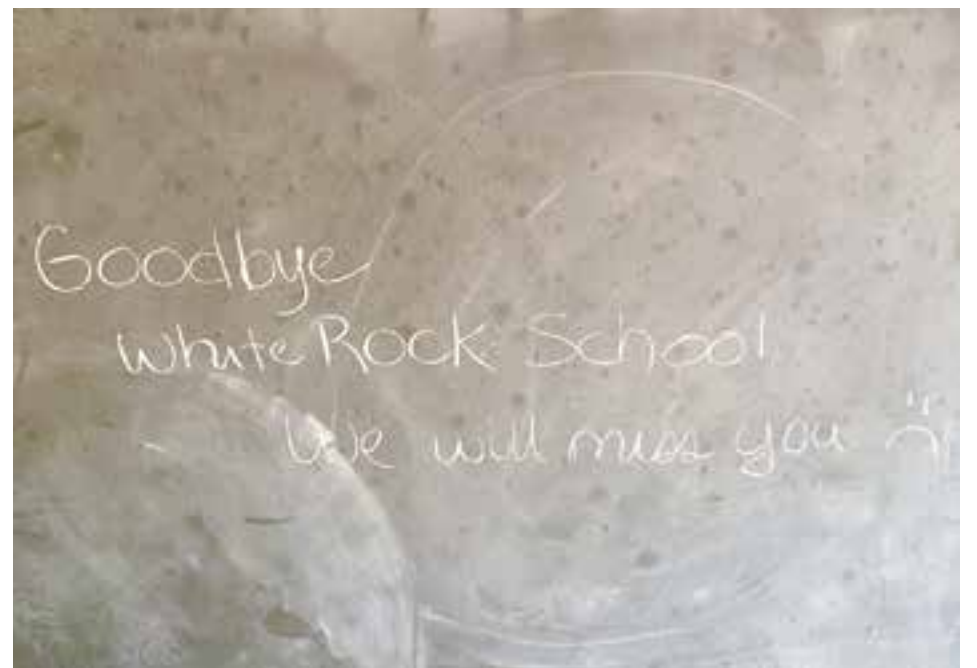 Goodbye
White Rock School
We will miss you :(